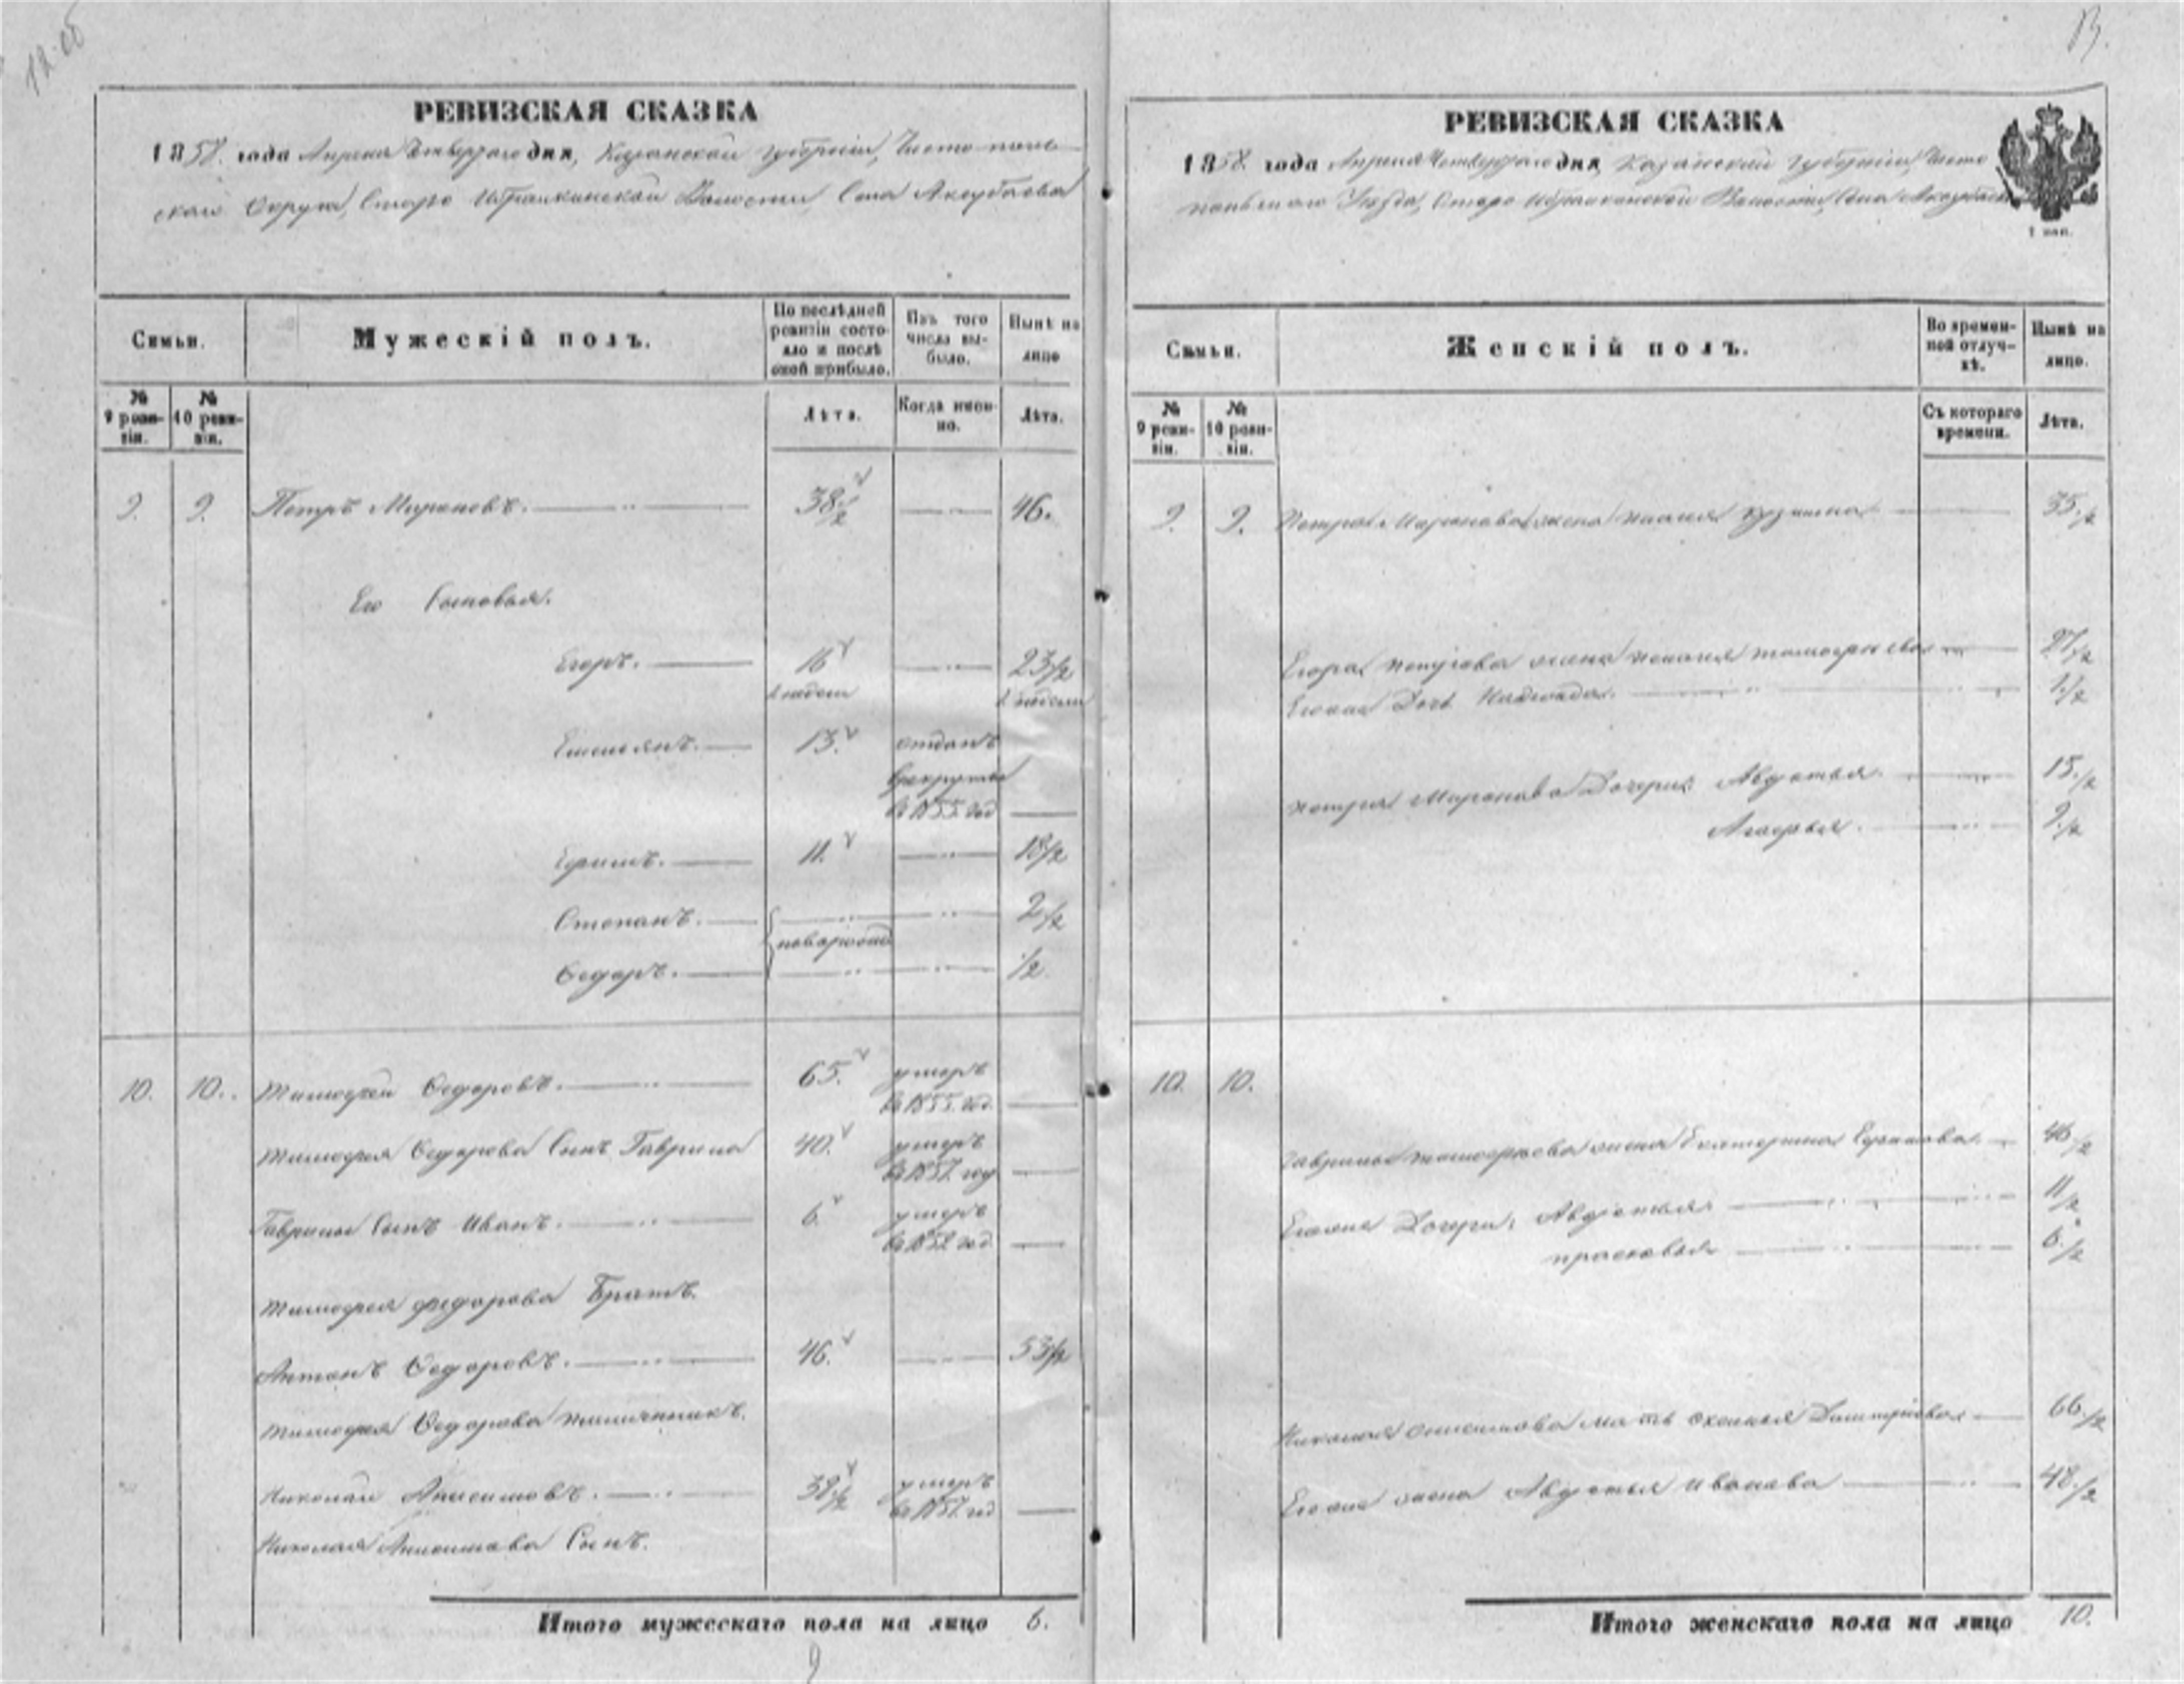 12 об
РЕВИЗСКАЯ СКАЗКА
1858. года Апреля Четвертаго дня, Казанской губернiи, Чистополь
скаго Округа, Старо Волости, Села Аксубаева
Семьи.
Мужескiй полъ.
По послѣдней ревизiи состояло и послѣ оной прибыло.
Изъ того числа выбыло.
Нынѣ на лицо
№ 9 ревизiи.
№ 10 ревизiи.
Лѣта.
Когда именно.
Лѣта.
9. 9. Петръ Мироновъ. 38 1/2 46.
Его Сыновья.
Егоръ. 16 23 1/2
Емельянъ. 13. отданъ
врекруты
въ 1855. год
Ефимъ. 11. 18 1/2
Степанъ. 2 1/2
Ѳедоръ. 1/2
10. 10. Тимофей Ѳедоровъ. 65. умеръ
въ 1855. год.
Тимофея Ѳедорова Сынъ Гаврила 40. умеръ
въ 1857. году
Гаврилы Сынъ Иванъ. 6. умеръ
въ 1852 год
Тимофея федорова Братъ.
Антонъ Ѳедоровъ. 46. 53 1/2
Тимофея Ѳедорова племянникъ.
Николай Анисимовъ. 38 1/2 умеръ
въ 1857. год
Николая Анисимова Сынъ.
Итого мужескаго пола на лицо 6.
9
13.
РЕВИЗСКАЯ СКАЗКА
1858. года Апреля Четвертаго дня, Казанской Губернiи, Чисто
польскаго Уезда, Старо Волости, Села
1 коп.
Семьи.
Женскiй полъ.
Во временной отлучкѣ.
Нынѣ на лицо.
№ 9 ревизiи.
№ 10 ревизiи.
Съ котораго времени.
Лѣта.
9. 9. Петра Миронова жена 35. 1/2
Егора Петрова жена Тимофеева 27 1/2
Егоная Дочь Надежда. 1. 1/2
Петра Миронова Дочери: Авдотья. 15. 1/2
Агафья. 9. 1/2
10. 10.
Гаврилы Тимофеева жена Екатерина Ефимова 46 1/2
Егоные Дочери: Авдотья 11 1/2
прасковья 6. 1/2
Николая Анисимова мать Дмитриева 66. 1/2
Егоная жена Авдотья Иванова 48. 1/2
Итого женскаго пола на лицо 10.